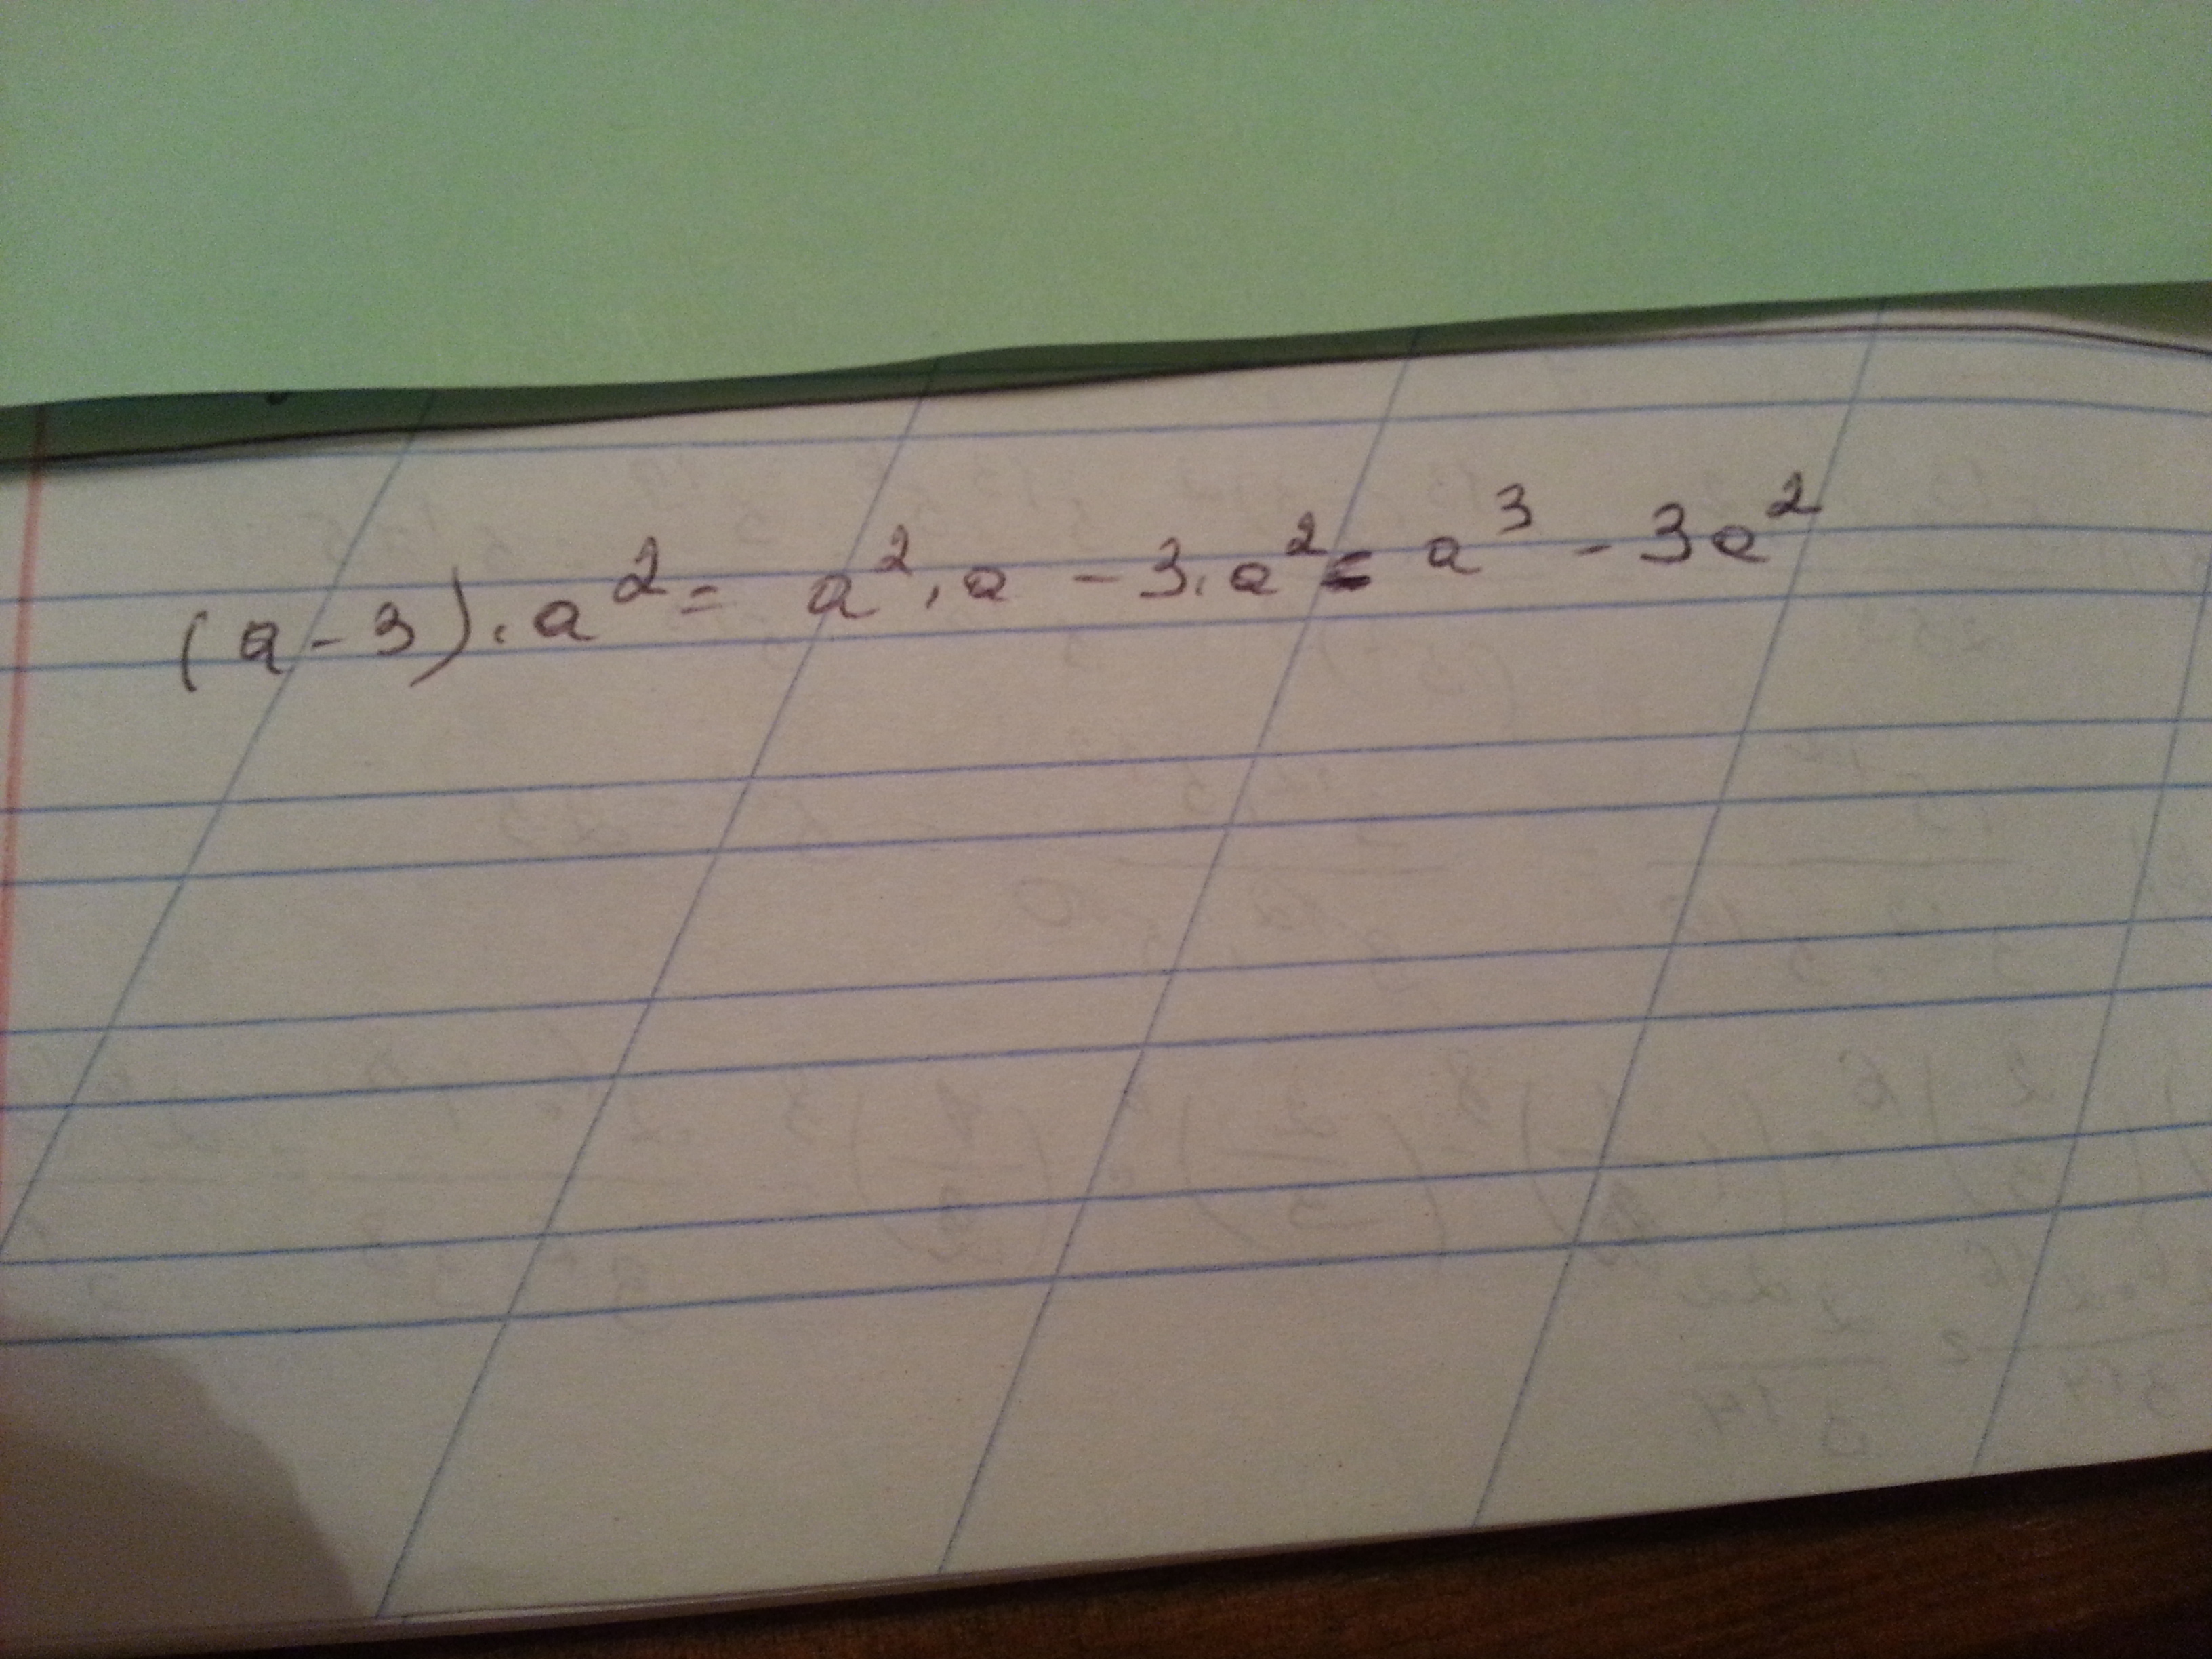 (a-3).a² = a².a - 3.a² = a³ - 3a²